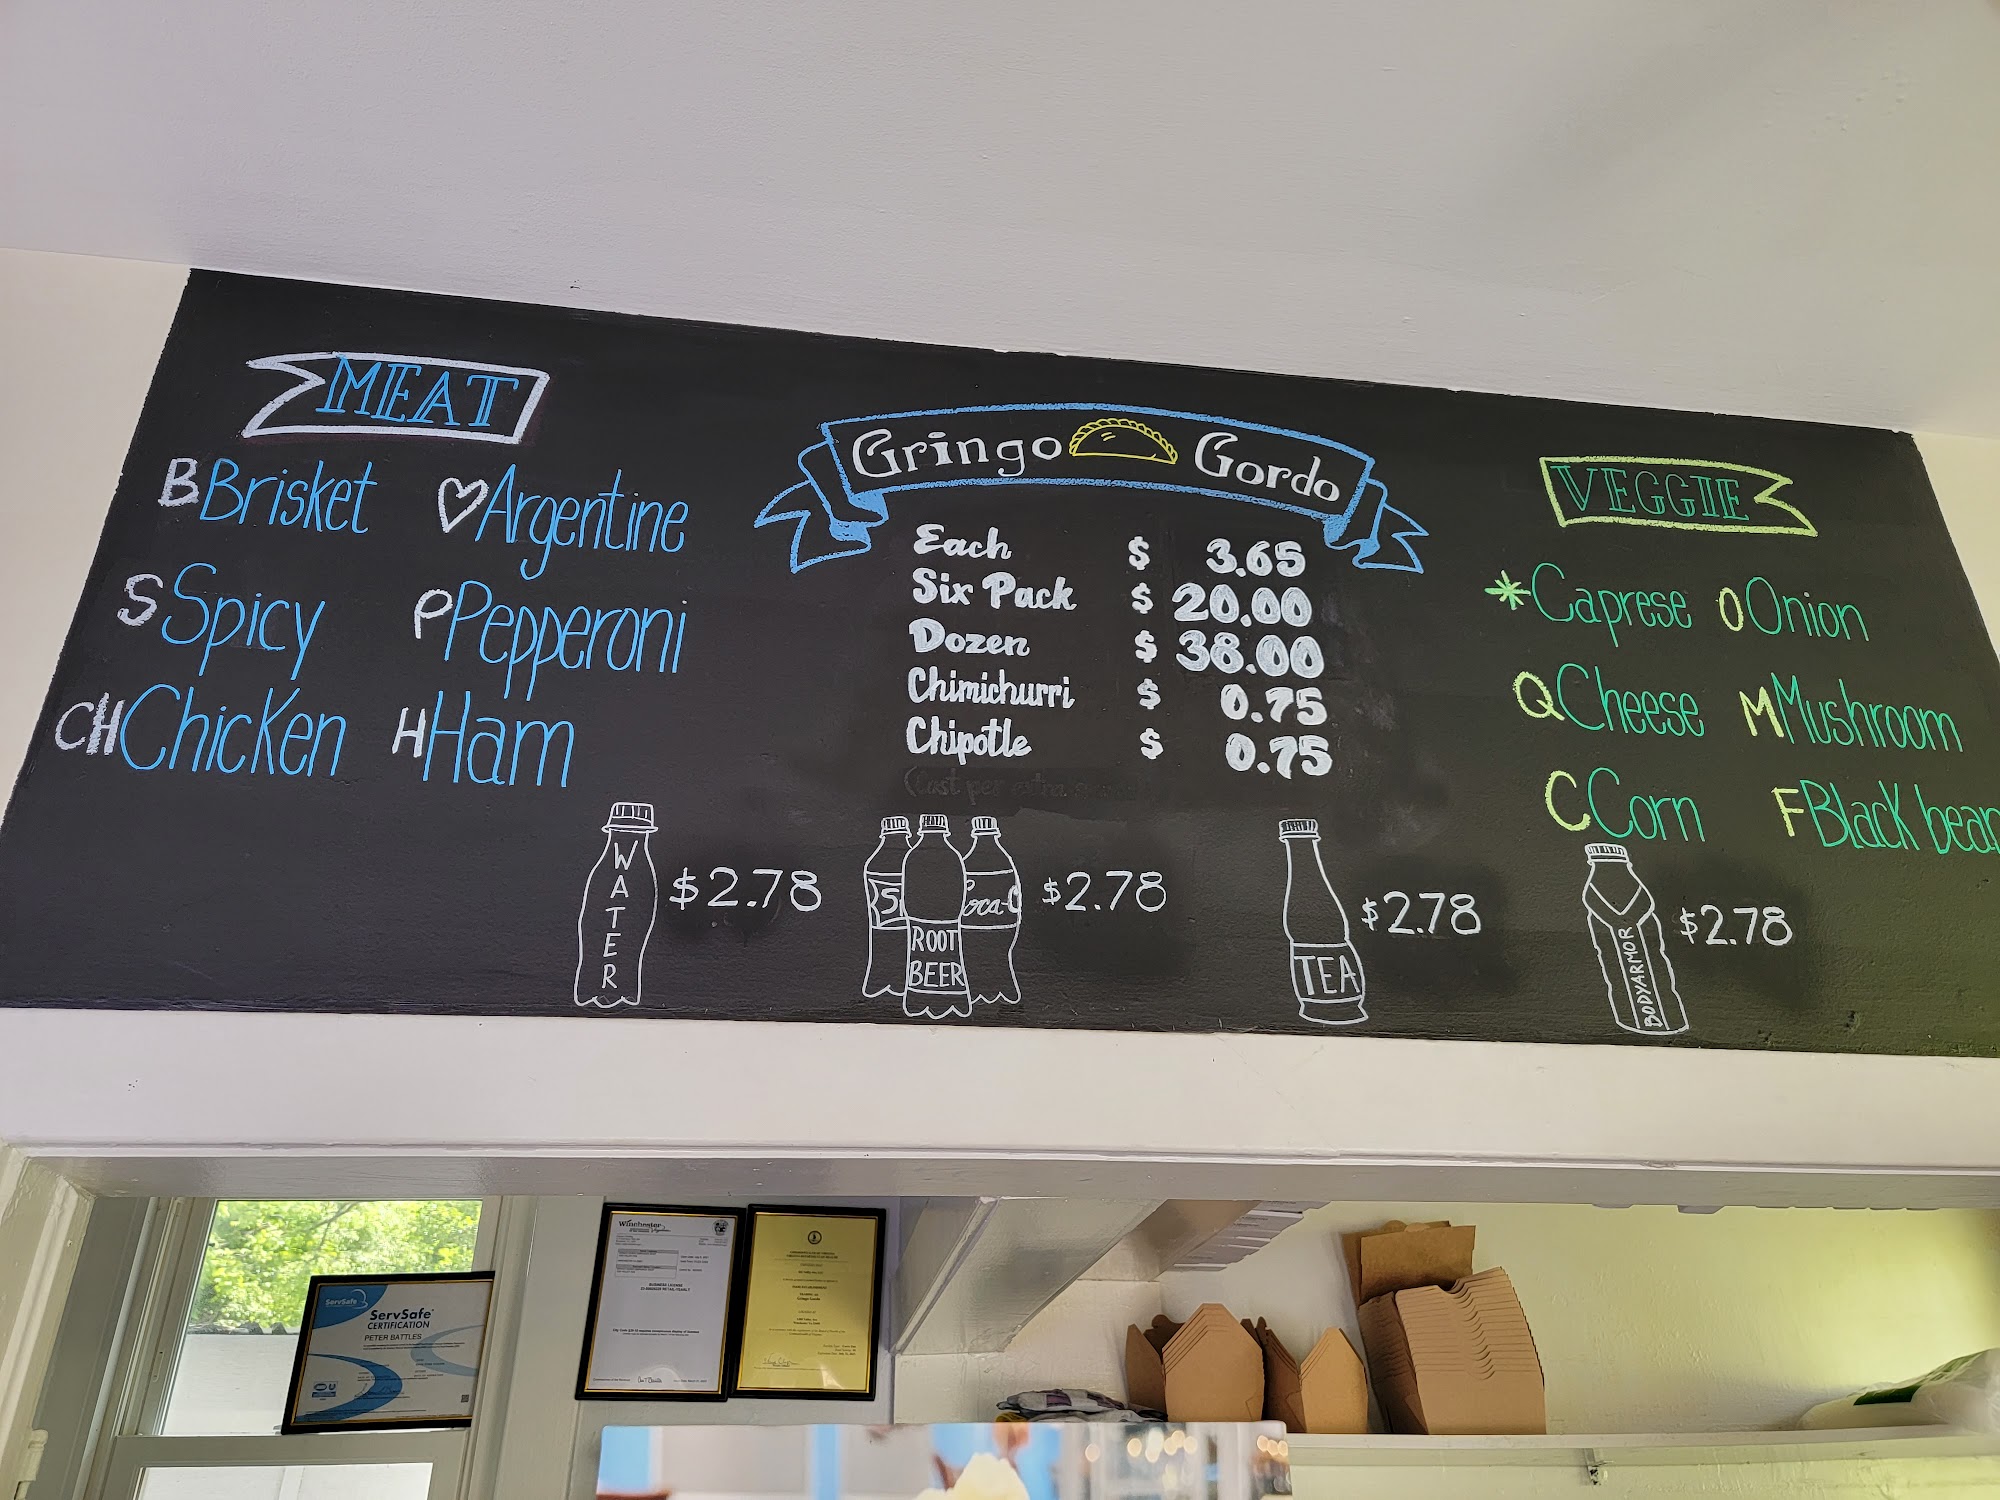 MEAT
B Brisket
♡ Argentine
S Spicy
P Pepperoni
CH Chicken
H Ham
Gringo Gordo
Each $ 3.65
Six Pack $ 20.00
Dozen $ 38.00
Chimichurri $ 0.75
Chipotle $ 0.75
(Cost per extra
VEGGIE
* Caprese
O Onion
Q Cheese
M Mushroom
C Corn
F Black bean
WATER
$2.78
ROOT
BEER
$2.78
TEA
$2.78
BODYARMOR
$2.78
ServSafe
ServSafe®
CERTIFICATION
PETER BATTLES
Winchester
BUSINESS LICENSE